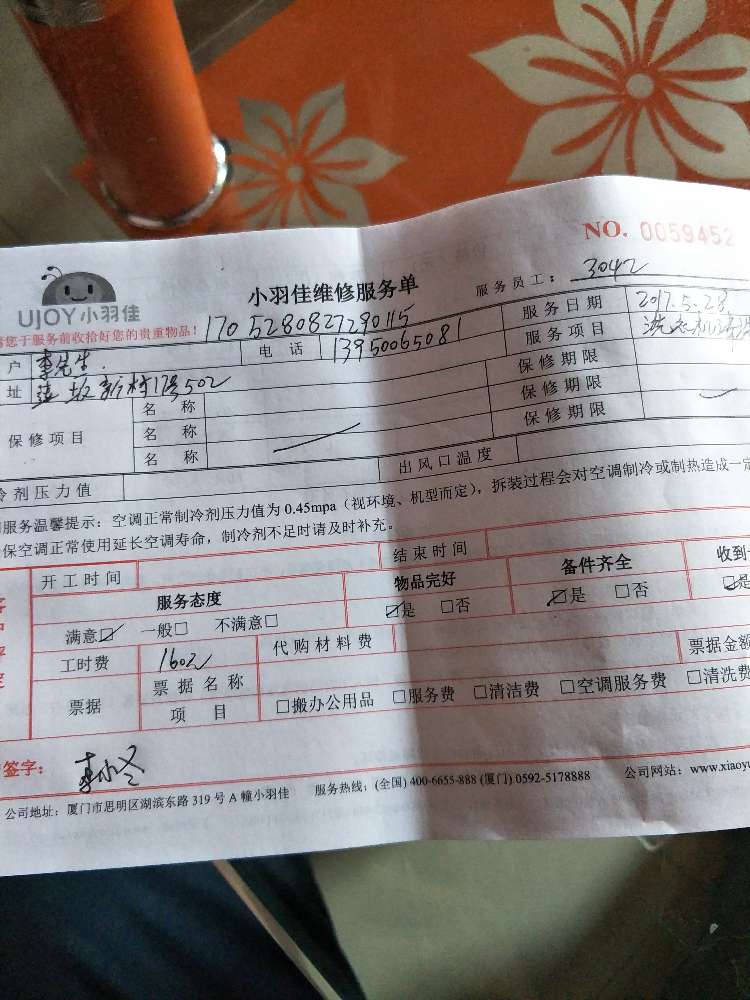 NO. 0059452
UJOY小羽佳
小羽佳维修服务单
服务员工： 3042
您于服务前收拾好您的贵重物品！ 1705280827290115
户 李先生 电 话 13950065081 服务日期 2017.5.28
址 坂新村17号502 服务项目 洗衣机清洗
保修项目 名 称 保修期限
名 称 保修期限
名 称 保修期限
剂压力值 出风口温度
服务温馨提示：空调正常制冷剂压力值为 0.45mpa（视环境、机型而定），拆装过程会对空调制冷或制热造成一定
保空调正常使用延长空调寿命，制冷剂不足时请及时补充。
开工时间 结束时间
服务态度 物品完好 备件齐全 收到
满意☑ 一般□ 不满意□ ☑是 □否 ☑是 □否 ☑是
工时费 160元 代购材料费 票据金额
票据 票据名称
项 目 □搬办公用品 □服务费 □清洁费 □空调服务费 □清洗费
签字：
公司地址：厦门市思明区湖滨东路 319 号 A 幢小羽佳 服务热线：(全国) 400-6655-888 (厦门) 0592-5178888 公司网站：www.xiaoyu